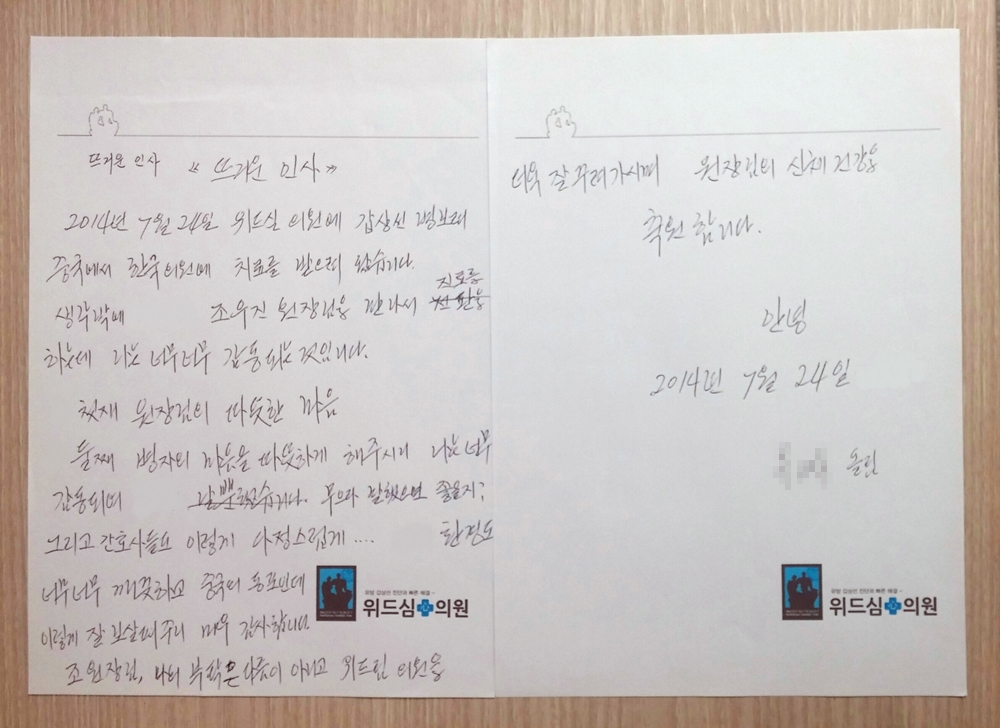 뜨거운 인사 《 뜨거운 인사 》
2014년 7월 24일 위드심 의원에 갑상선 병보러
중국에서 한국의원에 치료를 받으러 왔습니다.
진료를
생각밖에 조우진 원장님을 만나서
하는데 나는 너무너무 감동되는 것입니다.
첫재 원장님의 따뜻한 마음
둘째 병자의 마음을 따뜻하게 해주시니 나는 너무
감동되며 무으라 말했으면 좋을지?
그리고 간호사들도 이렇게 다정스럽게 .... 환경도
너무너무 깨끗하고 중국의 동포인데
이렇게 잘 보살펴주니 매우 감사합니다.
조원장님, 나의 부탁은 다름이 아니고 위드심 의원을
유방 갑상선 진단과 빠른 해결
위드심 의원
더욱 잘 꾸려가시며 원장님의 신체 건강을
축원합니다.
안녕
2014년 7월 24일
올림
유방 갑상선 진단과 빠른 해결
위드심 의원